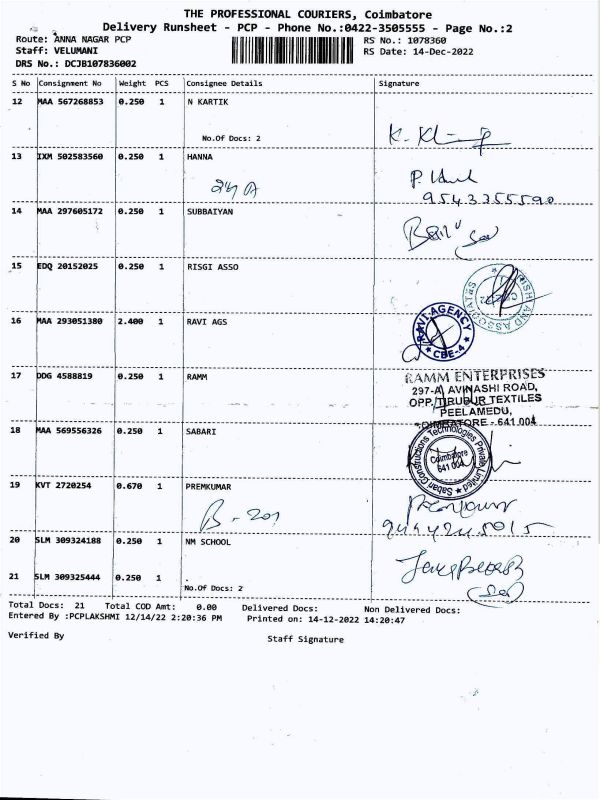 THE PROFESSIONAL COURIERS, Coimbatore
Delivery Runsheet - PCP - Phone No.:0422-3505555 - Page No.:2
Route: ANNA NAGAR PCP
RS No.: 1078360
Staff: VELUMANI
RS Date: 14-Dec-2022
DRS No.: DCJB107836002
S No Consignment No Weight PCS Consignee Details Signature
12 MAA 567268853 0.250 1 N KARTIK
No.Of Docs: 2
13 IXM 502583560 0.250 1 HANNA
9543355590
14 MAA 297605172 0.250 1 SUBBAIYAN
15 EDQ 20152025 0.250 1 RISGI ASSO
16 MAA 293051380 2.400 1 RAVI AGS
RAVI AGENCY
CBE-4
17 DDG 4588819 0.250 1 RAMM
RAMM ENTERPRISES
297-A, AVINASHI ROAD,
OPP. TIRUPUR TEXTILES
PEELAMEDU,
COIMBATORE - 641 004
18 MAA 569556326 0.250 1 SABARI
Sabari Constructions Technologies Private Limited
Coimbatore
641 004
19 KVT 2720254 0.670 1 PREMKUMAR
B-201
20 SLM 309324188 0.250 1 NM SCHOOL
21 SLM 309325444 0.250 1 .
No.Of Docs: 2
Total Docs: 21 Total COD Amt: 0.00 Delivered Docs: Non Delivered Docs:
Entered By :PCPLAKSHMI 12/14/22 2:20:36 PM Printed on: 14-12-2022 14:20:47
Verified By Staff Signature